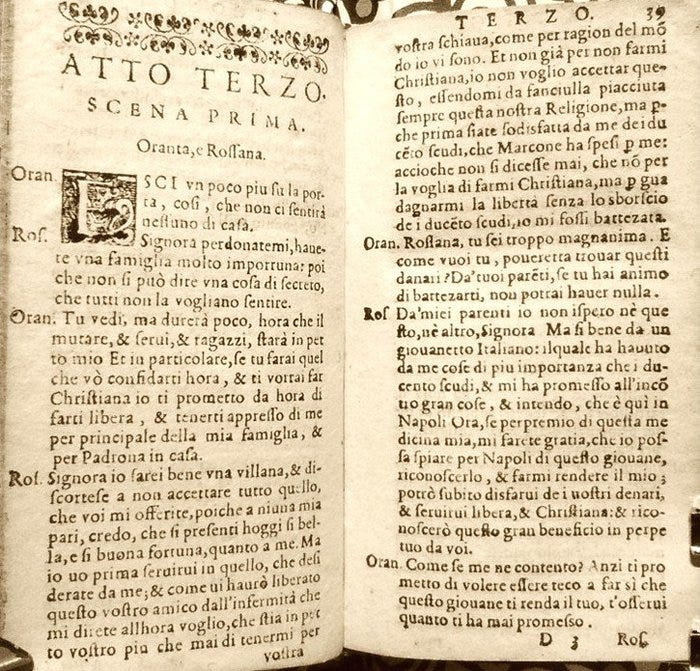 ATTO TERZO.
SCENA PRIMA.
Oranta, e Rossana.
Oran. ESCI vn poco piu su la por-
ta, cosi, che non ci sentirà
nessuno di casa.
Ros. Signora perdonatemi, haue-
te vna famiglia molto importuna: poi
che non si può dire vna cosa di secreto,
che tutti non la vogliano sentire.
Oran. Tu vedi, ma durerà poco, hora che il
mutare, & serui, & ragazzi, starà in pet
to mio Et in particulare, se tu farai quel
che vò confidarti hora, & ti vorrai far
Christiana io ti prometto da hora di
farti libera, & tenerti appresso di me
per principale della mia famiglia, &
per Padrona in casa.
Ros. Signora io sarei bene vna villana, & di-
scortese a non accettare tutto quello,
che voi mi offerite, poiche a niuna mia
pari, credo, che si presenti hoggi si bel-
la, e si buona fortuna, quanto a me. Ma
io uo prima seruirui in quello, che desi
derate da me; & come ui haurò liberato
questo vostro amico dall'infermità che
mi direte allhora voglio, che stia in pet
to vostro piu che mai di tenermi per
vostra
TERZO. 39
vostra schiaua, come per ragion del mõ
do io vi sono. Et non già per non farmi
Christiana, io non voglio accettar que-
sto, essendomi da fanciulla piacciuta
sempre questa nostra Religione, ma p̱
che prima siate sodisfatta da me dei du
cẽto scudi, che Marcone ha spesi p̱ me:
accioche non si dicesse mai, che nõ per
la voglia di farmi Christiana, ma p̱ gua
dagnarmi la libertà senza lo sborscio
de i ducẽto scudi, io mi fossi battezata.
Oran. Rossana, tu sei troppo magnanima. E
come vuoi tu, poueretta trouar questi
danari? Da'tuoi parẽti, se tu hai animo
di battezarti, nou potrai hauer nulla.
Ros Da'miei parenti io non ispero nè que
sto, nè altro, Signora Ma si bene da un
giouanetto Italiano: ilquale ha hauuto
da me cose di piu importanza che i du-
cento scudi, & mi ha promesso all'incõ
tro gran cose, & intendo, che è quì in
Napoli Ora, se per premio di questa me
dicina mia, mi farete gratia, che io pos-
sa spiare per Napoli di questo giouane,
riconoscerlo, & farmi rendere il mio;
potrò subito disfarui de i uostri denari,
& seruirui libera, & Christiana: & rico-
noscerò questo gran beneficio in perpe
tuo da voi.
Oran. Come se me ne contento? Anzi ti pro
metto di volere essere teco a far sì che
questo giouane ti renda il tuo, t'osserui
quanto ti ha mai promesso.
D 3 Ros.